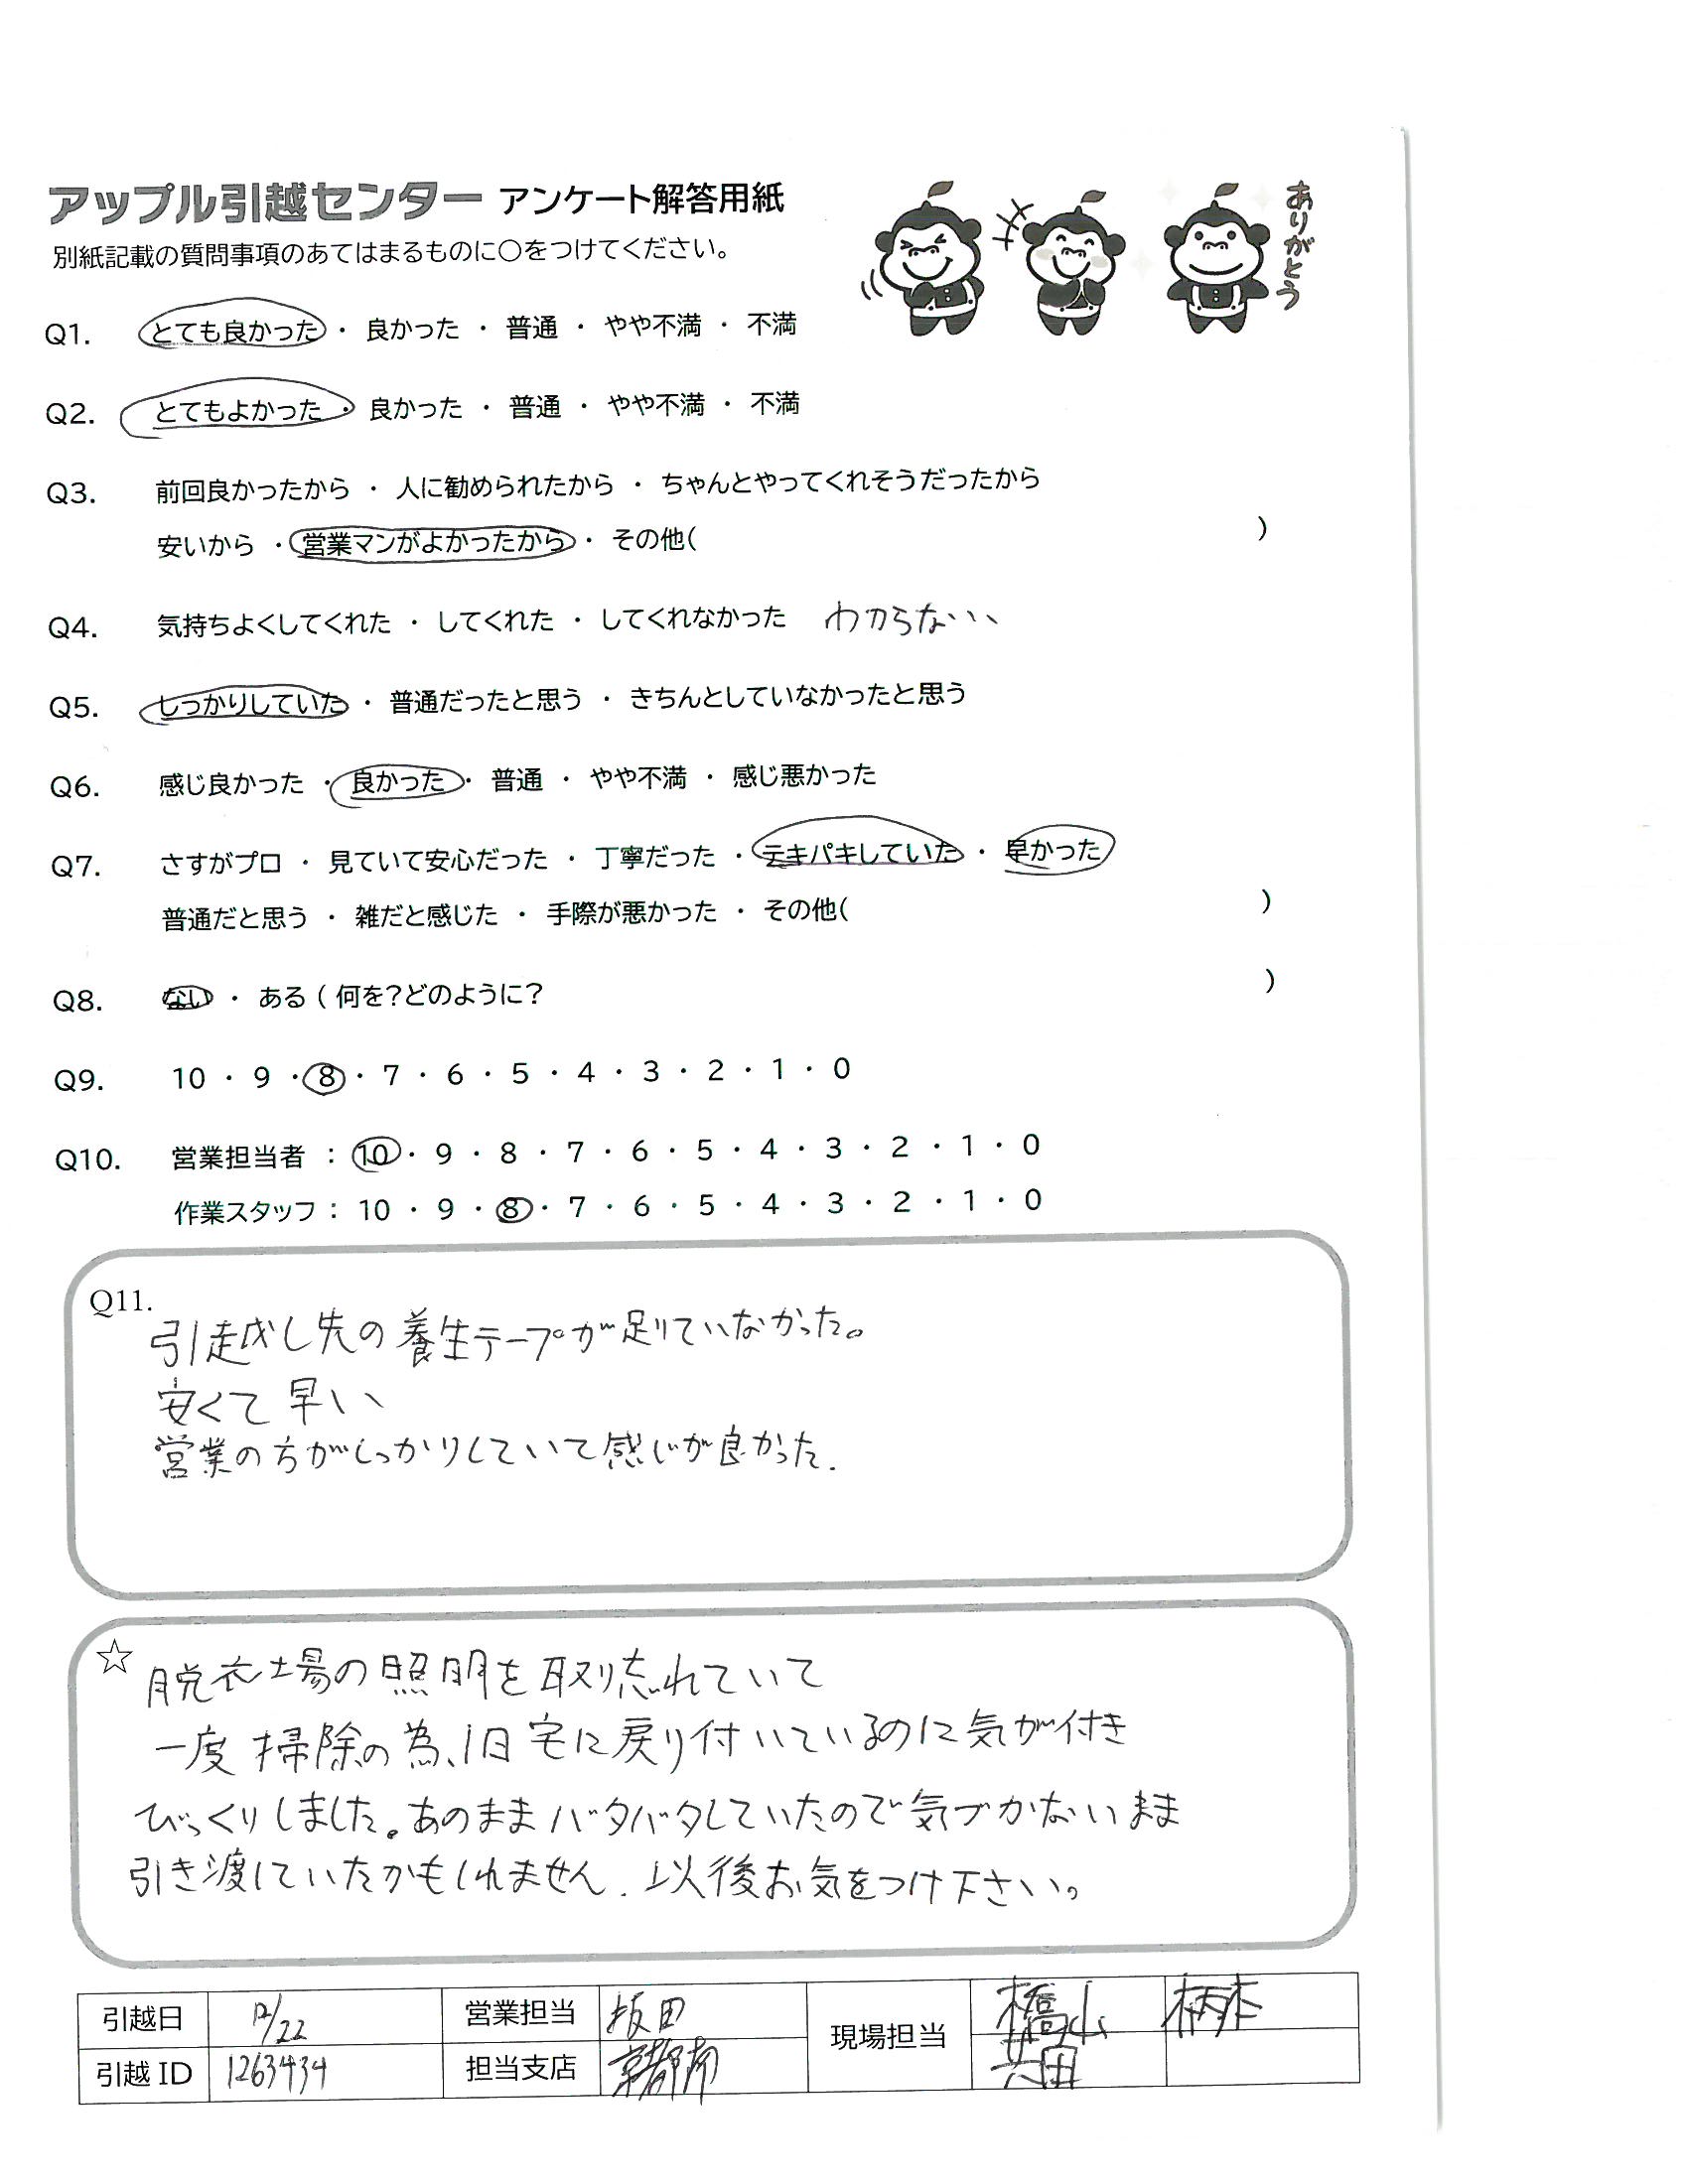 アップル引越センター アンケート解答用紙
ありがとう
別紙記載の質問事項のあてはまるものに○をつけてください。
Q1. とても良かった ・ 良かった ・ 普通 ・ やや不満 ・ 不満
Q2. とてもよかった ・ 良かった ・ 普通 ・ やや不満 ・ 不満
Q3. 前回良かったから ・ 人に勧められたから ・ ちゃんとやってくれそうだったから
安いから ・ 営業マンがよかったから ・ その他( )
Q4. 気持ちよくしてくれた ・ してくれた ・ してくれなかった わからない
Q5. しっかりしていた ・ 普通だったと思う ・ きちんとしていなかったと思う
Q6. 感じ良かった ・ 良かった ・ 普通 ・ やや不満 ・ 感じ悪かった
Q7. さすがプロ ・ 見ていて安心だった ・ 丁寧だった ・ テキパキしていた ・ 早かった
普通だと思う ・ 雑だと感じた ・ 手際が悪かった ・ その他( )
Q8. ない ・ ある ( 何を?どのように? )
Q9. 10 ・ 9 ・ 8 ・ 7 ・ 6 ・ 5 ・ 4 ・ 3 ・ 2 ・ 1 ・ 0
Q10. 営業担当者 : 10 ・ 9 ・ 8 ・ 7 ・ 6 ・ 5 ・ 4 ・ 3 ・ 2 ・ 1 ・ 0
作業スタッフ : 10 ・ 9 ・ 8 ・ 7 ・ 6 ・ 5 ・ 4 ・ 3 ・ 2 ・ 1 ・ 0
Q11.
引越し先の養生テープが足りていなかった。
安くて早い
営業の方がしっかりしていて感じが良かった.
☆ 脱衣場の照明を取り忘れていて
一度掃除の為、旧宅に戻り付いているのに気が付き
びっくりしました。あのままバタバタしていたので気づかないまま
引き渡していたかもしれません. 以後お気をつけ下さい。
引越日 12/22 営業担当 坂田 現場担当 橋山 柄本
引越 ID 1263434 担当支店 京都南 共田